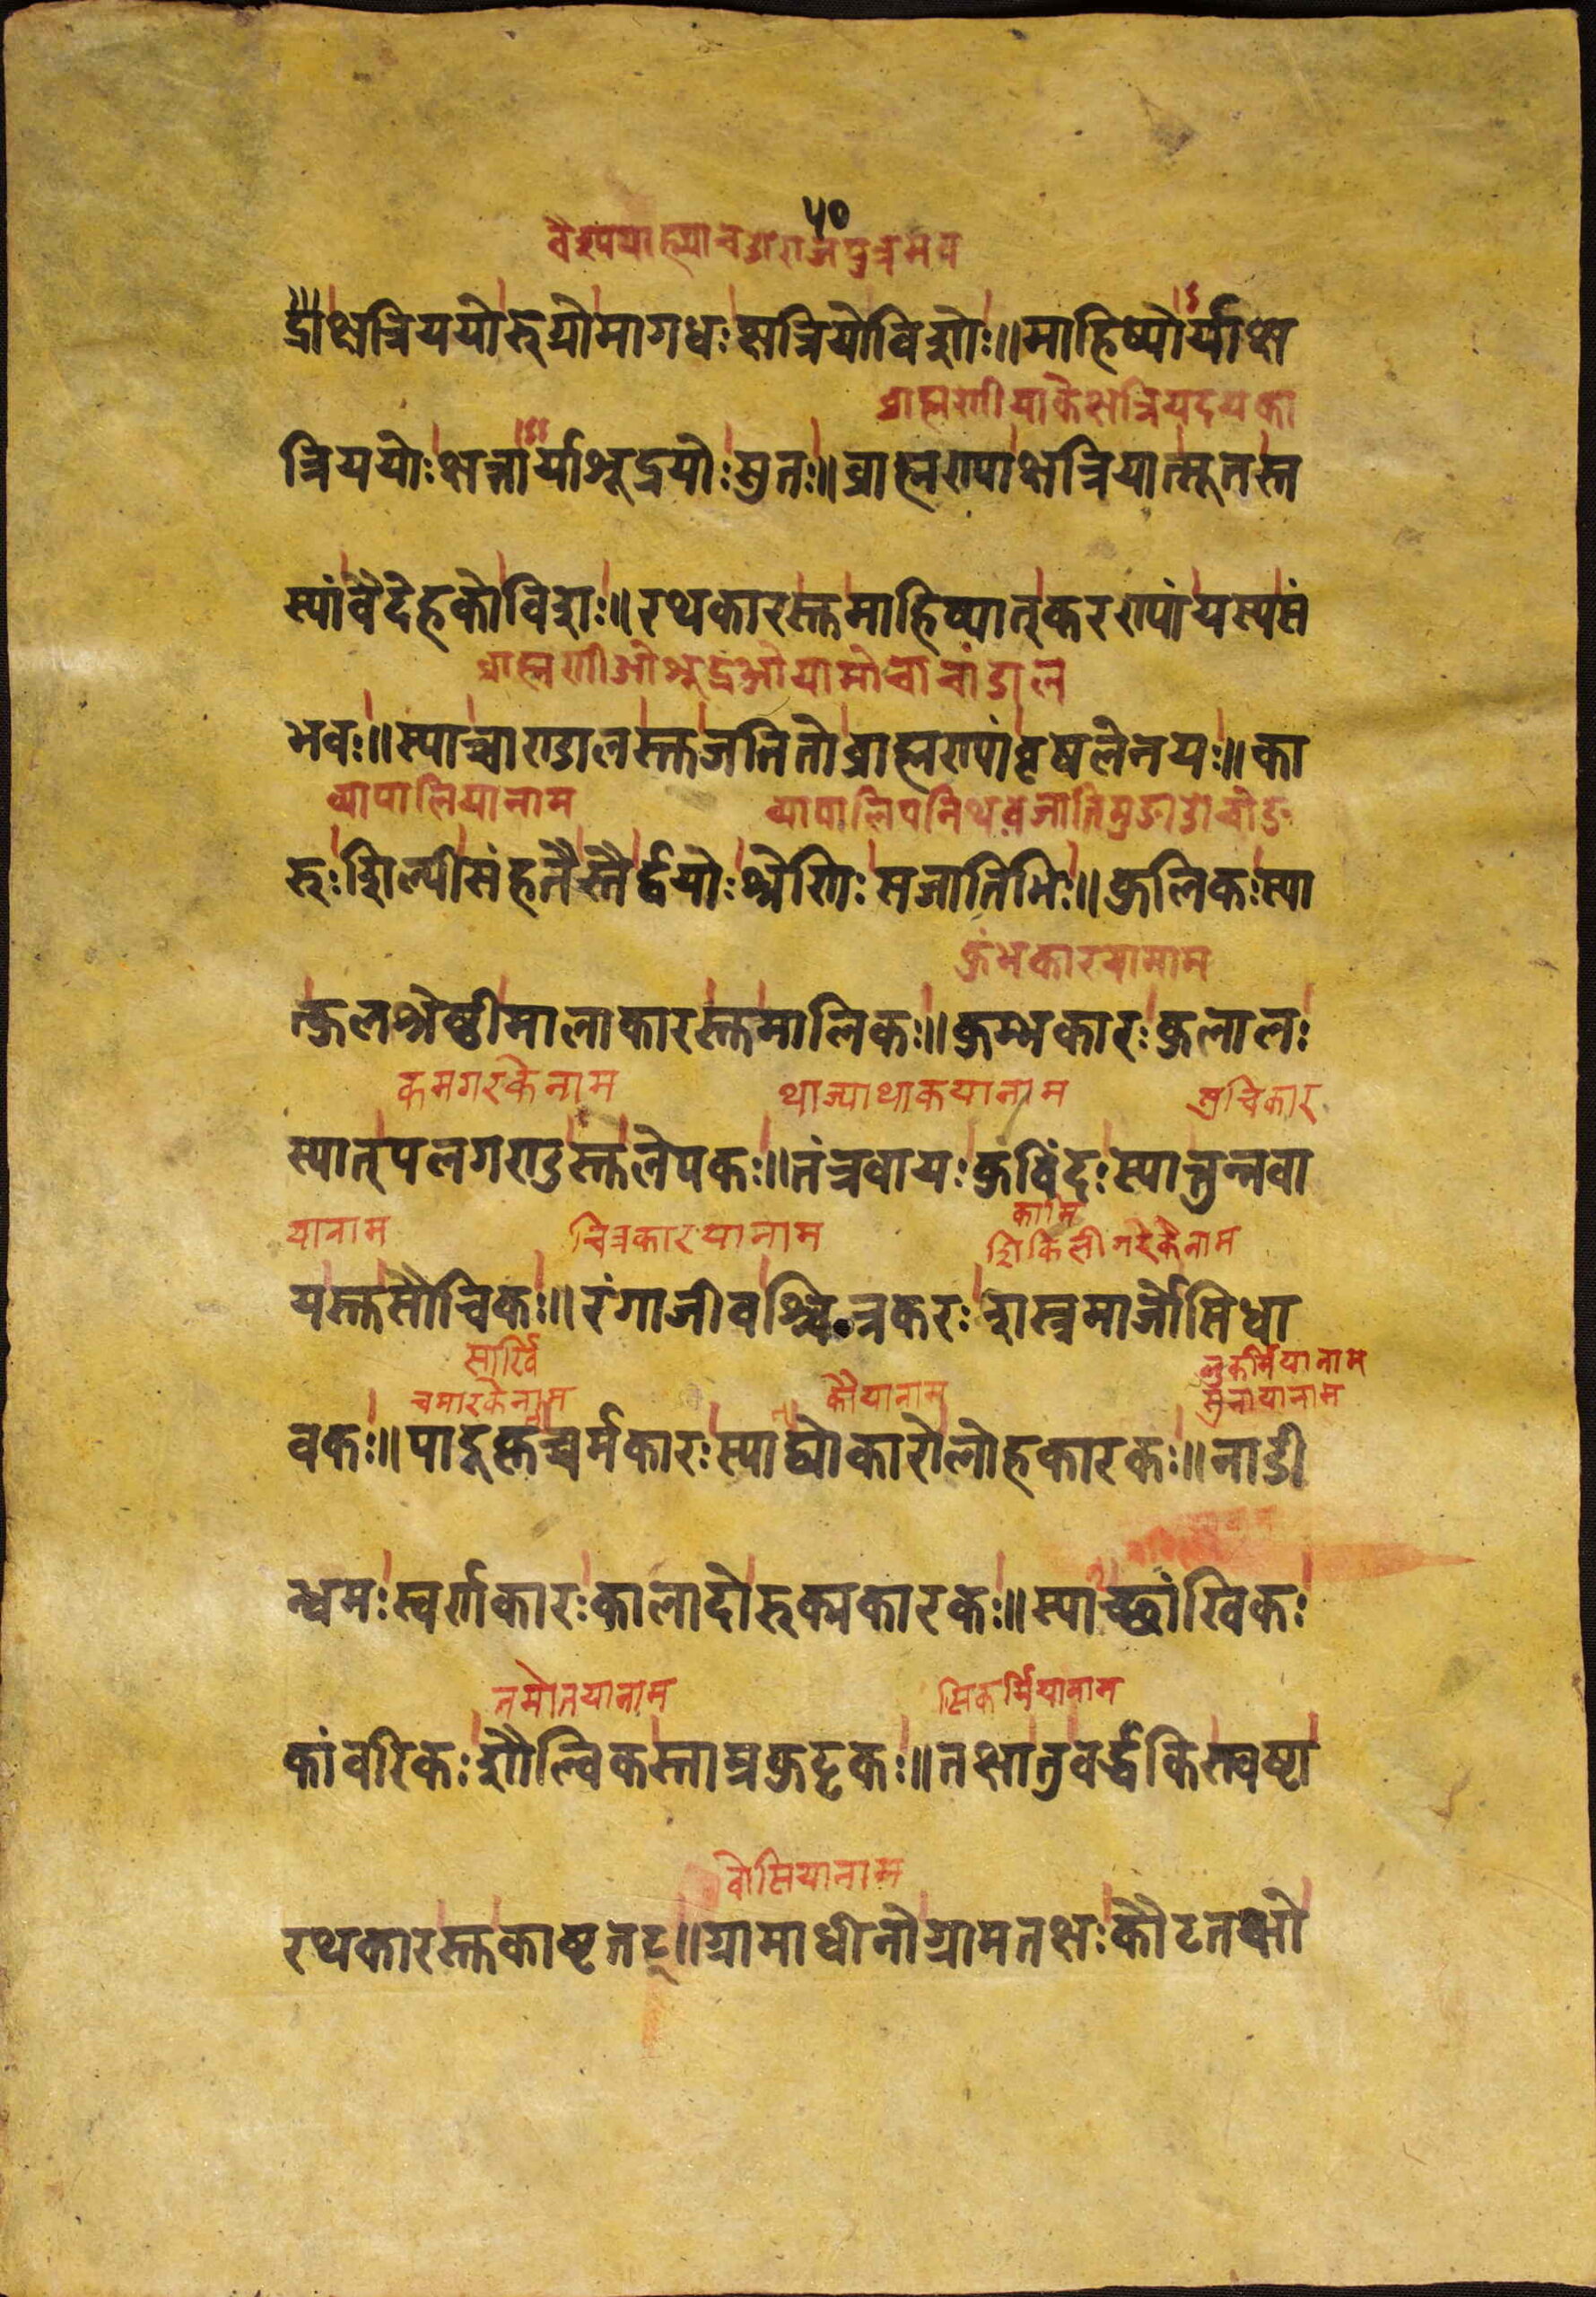 ५०
द्राक्षत्रिययोरुग्रोमागधः क्षत्रियोविशोः॥ माहिष्योर्याक्ष
ब्राह्मणीयाकेक्षत्रियदयका
त्रिययोः क्षत्तार्याशूद्रयोः सुतः॥ ब्राह्मण्यांक्षत्रियात्सूतस्त
स्यांवैदेहकोविशः॥ रथकारस्तुमाहिष्यात्करण्यांयस्यसं
ब्राह्मणीओशूद्रओयामोचाचांडाल
भवः॥ स्याच्चाण्डालस्तुजनितोब्राह्मण्यांवृषलेनयः॥ का
व्यापालियानाम
रुः शिल्पीसंहतैस्तैर्द्वयोः श्रेणिः सजातिभिः॥ कुलिकः स्या
कुंभकारयानाम
त्कुलश्रेष्ठीमालाकारस्तुमालिकः॥ कुम्भकारः कुलालः
कमगरकेनाम थाज्याथाकयानाम सुचिकार
स्यात्पलगण्डुस्तुलेपकः॥ तंत्रवायः कुविंदः स्यात्तुन्नवा
यानाम चित्रकारयानाम शिकिलीगरकेनाम
यस्तुसौचिकः॥ रंगाजीवश्चित्रकरः शस्त्रमार्जोसिधा
चमारकेनाम कौयानाम लुकर्मियानाम
वकः॥ पादूकृच्चर्मकारः स्याद्व्योकारोलोहकारकः॥ नाडी
न्धमः स्वर्णकारः कालादोरुक्मकारकः॥ स्याच्छांखिकः
तमोतयानाम सिकर्मियानाम
कांवरिकः शौल्विकस्ताम्रकुट्टकः॥ तक्षातुवर्द्धकिस्त्वष्टा
रथकारस्तुकाष्टतट्॥ ग्रामाधीनोग्रामतक्षः कौटतक्षो